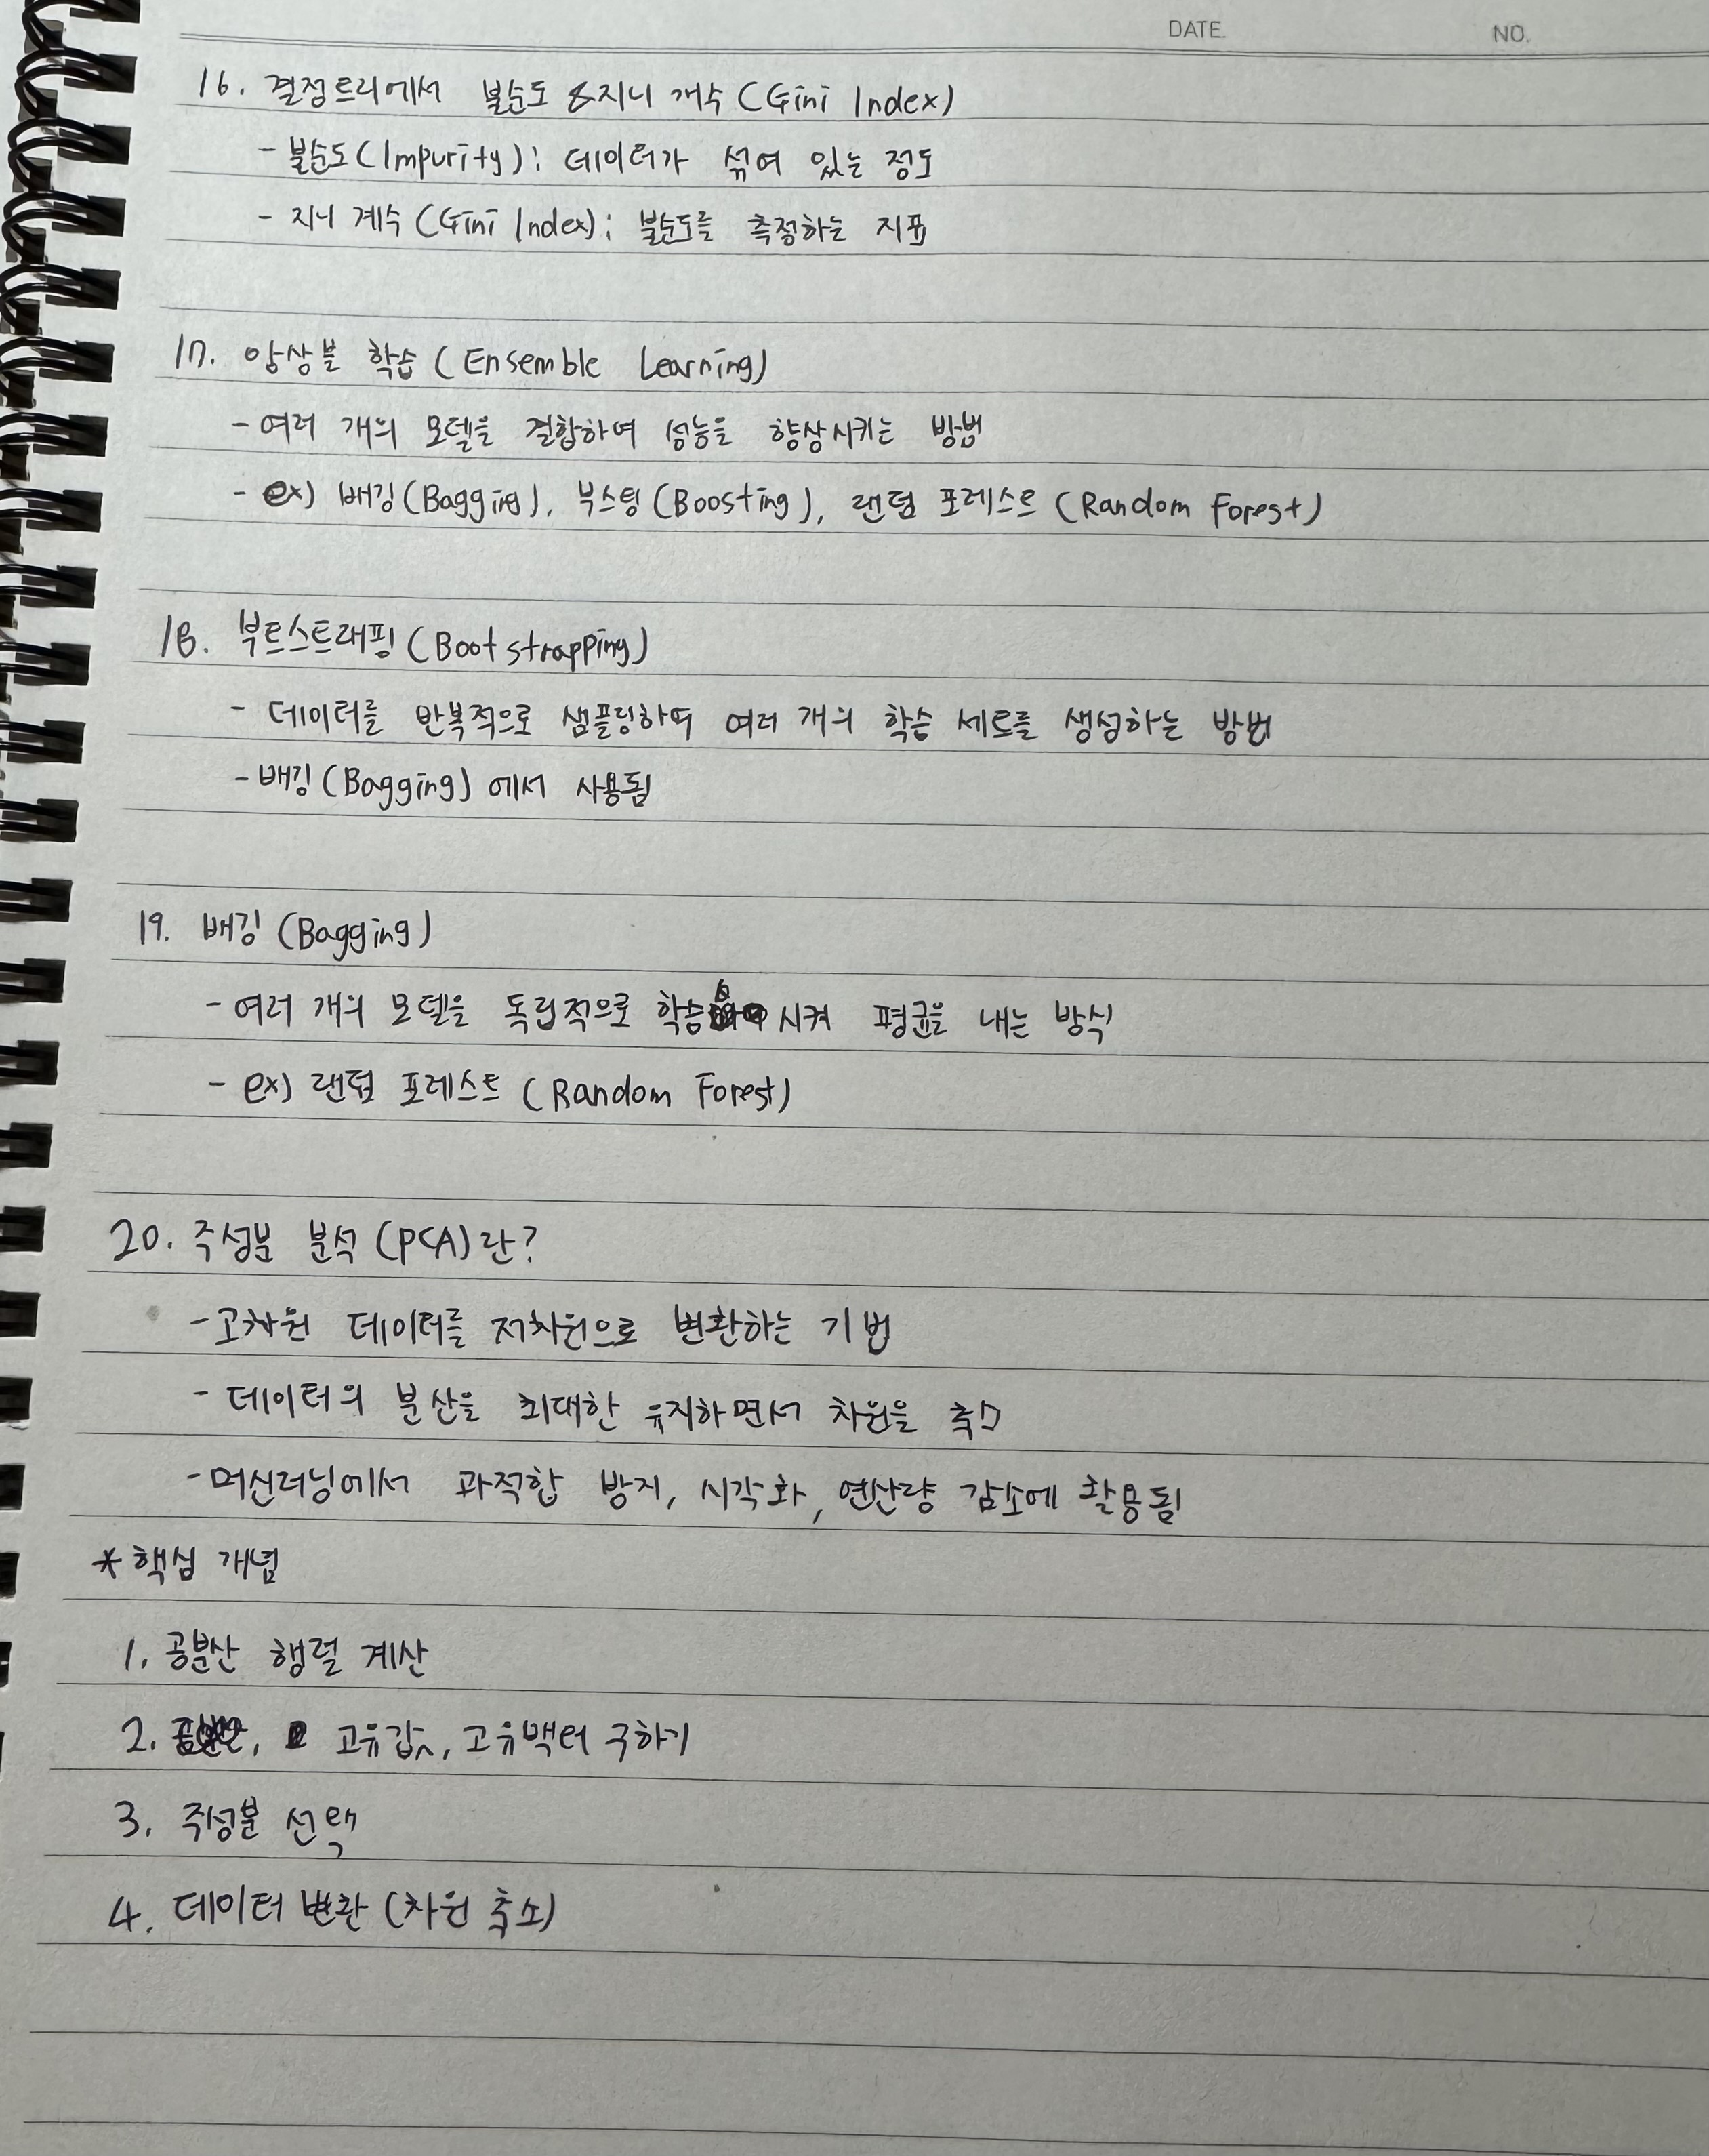 DATE. NO.
16. 결정트리에서 불순도 & 지니 개수 (Gini Index)
- 불순도(Impurity): 데이터가 섞여 있는 정도
- 지니 계수 (Gini Index): 불순도를 측정하는 지표
17. 앙상블 학습 (Ensemble Learning)
- 여러 개의 모델을 결합하여 성능을 향상시키는 방법
- ex) 배깅(Bagging), 부스팅(Boosting), 랜덤 포레스트 (Random Forest)
18. 부트스트래핑 (Bootstrapping)
- 데이터를 반복적으로 샘플링하여 여러 개의 학습 세트를 생성하는 방법
- 배깅(Bagging)에서 사용됨
19. 배깅 (Bagging)
- 여러 개의 모델을 독립적으로 학습 시켜 평균을 내는 방식
- ex) 랜덤 포레스트 (Random Forest)
20. 주성분 분석 (PCA)란?
- 고차원 데이터를 저차원으로 변환하는 기법
- 데이터의 분산을 최대한 유지하면서 차원을 축
- 머신러닝에서 과적합 방지, 시각화, 연산량 감소에 활용됨
* 핵심 개념
1. 공분산 행렬 계산
2. 고유값, 고유벡터 구하기
3. 주성분 선택
4. 데이터 변환 (차원 축소)